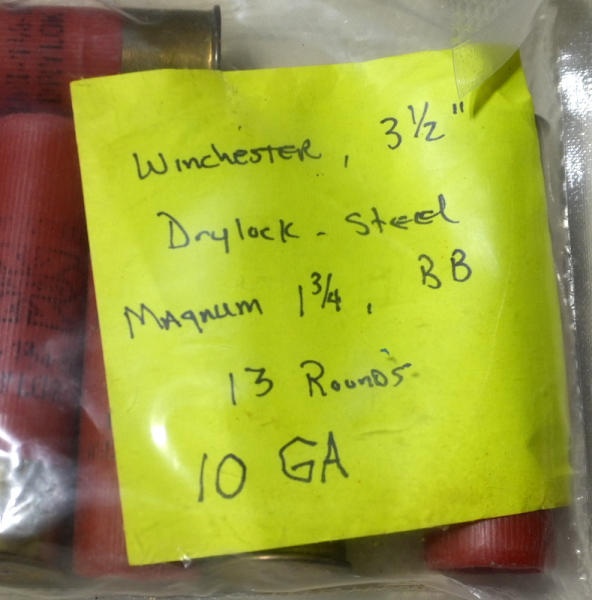 Winchester, 3 1/2"
Drylock - Steel
Magnum 1 3/4, BB
13 Rounds
10 GA